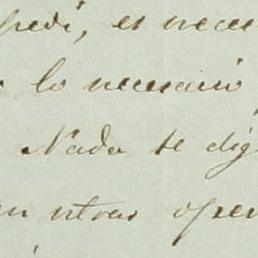 pedi, es nece
lo necesario
Nada te dig
en otras oper